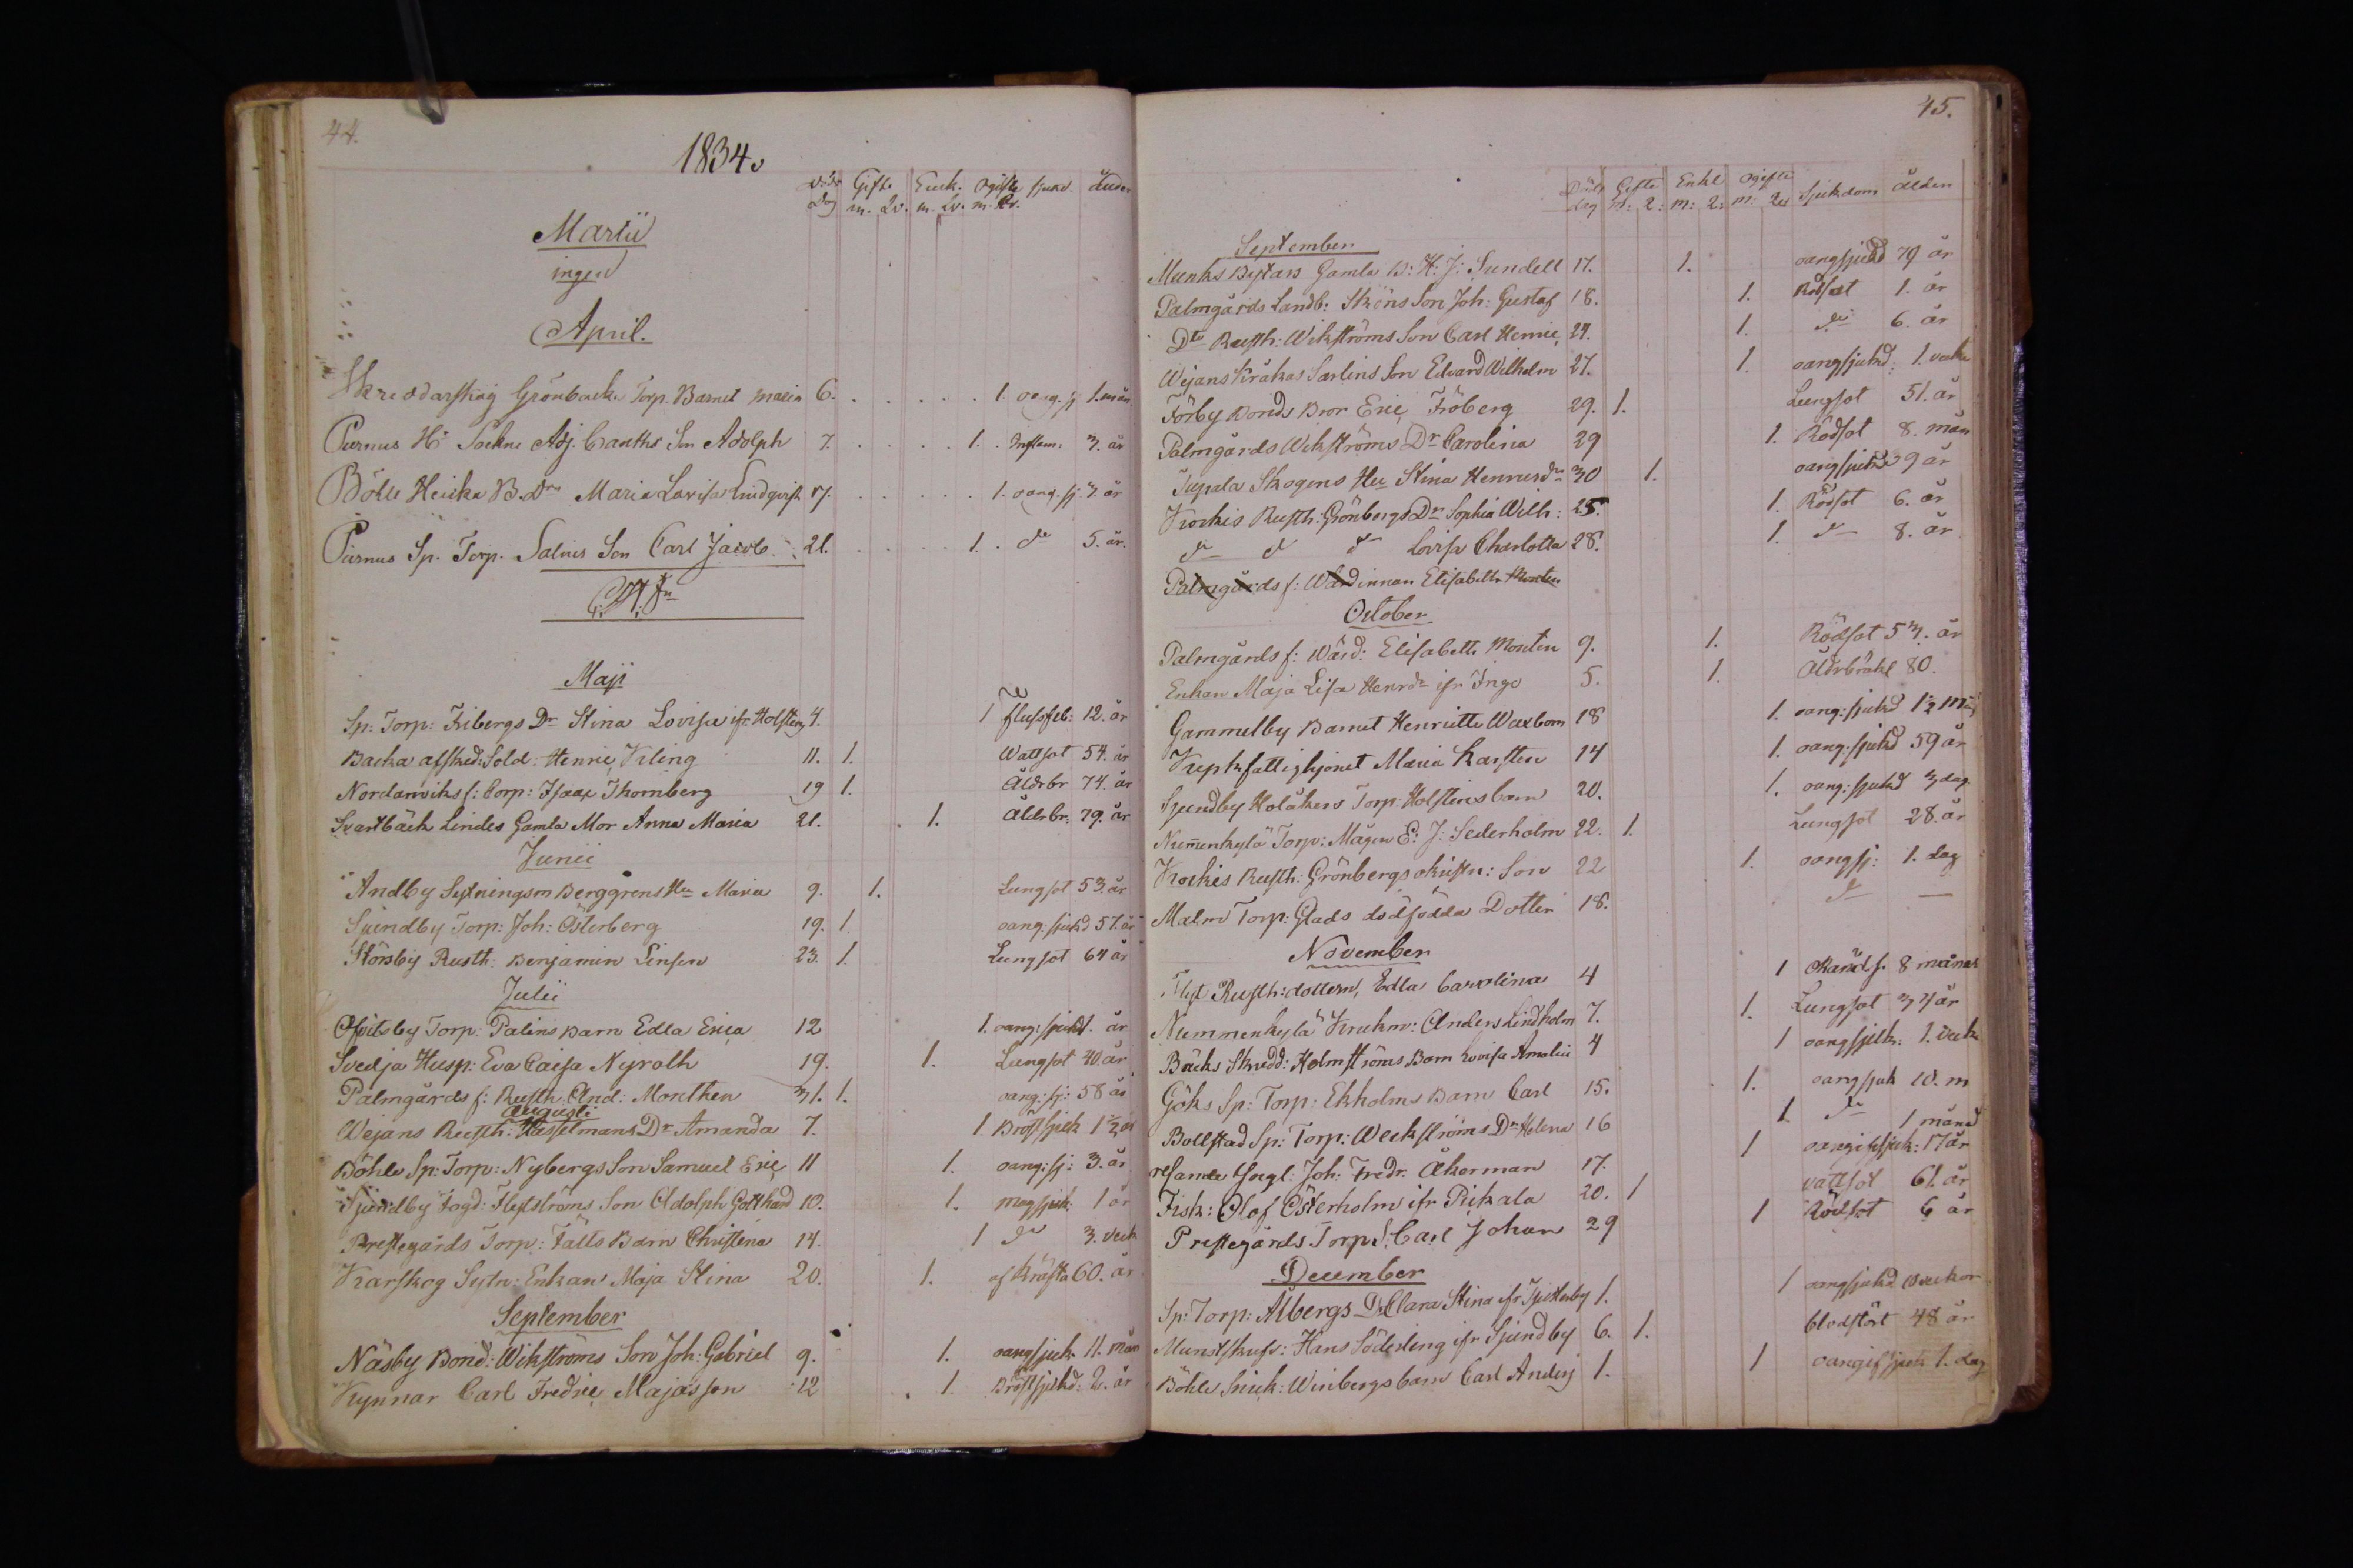 44.
1834.
Döds Dag Gifte m. Qv. Enk. m. Qv. Ogifte m. Qv. sjukd. ålder
Martii
ingen
April.
Skreddarskog Grönbacks Torp. Barnet Maria 6. 1. oang. sj 1. mån
Purnus H. Sockne Adj. Canths Son Adolph 7. 1. Inflam: 3. år
Böle Heicka B. Dr Maria Lovisa Lindqvist 17. 1. oang. sj. 3. år
Purnus Sp. Torp. Salins Son Carl Jacob 21. 1. do 5. år.
Maji
Sp: Torp: Fribergs Dr Stina Lovisa ifr. Holsteng 4. 1 flussfeb: 12. år
Backa afsked: Sold: Henric Kiling 11. 1. Wattsot 54. år
Nordanviks f: Corp: Isaac Thornberg 19 1. Åldrbr 74. år
Svartbäck Lindes Gamla Mor Anna Maria 21. 1. Åldrbr: 79. år
Junii
Andby Sytningsm Berggrens Hu Maria 9. 1. Lungsot 53. år
Sjundby Torp: Joh: Österberg 19. 1. oang: sjukd 57. år
Störsby Rusth: Benjamin Linsen 23. 1. Lungsot 64 år
Julii
Ofvitsby Torp: Palins Barn Edla Erica 12 1. oang: sjukd 1. år
Svedja Husp: Eva Caisa Nyroth 19. 1. Lungsot 40. år
Palmgårds f: Rusth. And: Monthen 31. 1. oang: sj: 58 år
Augusti
Wejans Rusth: Hasselmans Dr Amanda 7. 1. Bröstsjuk 1½ år
Böhle Sp: Torp: Nybergs Son Samuel Eric 11 1. oang: sj: 3. år
Sjundby Fogd: Flytströms Son Adolph Gotthard 10. 1. magsjuk: 1 år
Prestegårds Torp: Fälts Barn Christina 14. 1 do 3. veck
Karskog Sytn: Enkan Maja Stina 20. 1. af Kräfta 60. år
September
Näsby Bond: Wikströms Son Joh: Gabriel 9. 1. oangsjuk 11. mån
Kynnar Carl Fredric Majasson 12 1. Bröstsjukd: 2. år
45.
Döds dag Gifte m: 2: Enkl m: 2: ogifte m: 2: Sjukdom ålder
September
Munks Byttars Gamla B: H: J: Sundell 17. 1. oangsjukd 79 år
Palmgårds Landb: Sköns Son Joh: Gustaf 18. 1. Rödsot 1. år
Dto Rusth: Wikströms Son Carl Henric 24. 1. do 6. år
Wejans Kråkas Sarlins Son Edvard Wilhelm 27. 1 oangsjukd: 1. vecka
Förby Bonds Bror Eric Fröberg 29. 1. Lungsot 51. år
Palmgårds Wikströms Dr Carolina 29 1. Rödsot 8. mån
Tupala Skogens Hu Stina Henricsdr 30 1. oangsjukd 9 år
Krockis Rusth: Grönbergs Dr Sophia Wilh: 25. 1. Rödsot 6. år
do do do Lovisa Charlotta 28. 1. do 8. år
Palmgårds f: Wärdinnan Elisabeth Monten
October
Palmgårds f: Wärd: Elisabeth Monten 9. 1. Rödsot 53. år
Enkan Maja Lisa Henrdr ifr Ingo 5. 1. Åldrbräkl 80.
Gammelby Barnet Henriette Waxbom 18 1. oang: sjukd 1½ mån
Krepk fattighjonet Maria Karsten 14 1. oang: sjukd 59 år
Sjundby Holåkers Torp: Holstens barn 20. 1. oang: sjukd 3 dag
Nummenkylä Torp: Mågen E: J: Sederholm 22. 1. Lungsot 28. år
Krockis Rusth: Grönbergs okristn: Son 22 1. oangsj: 1. dag
Malm Torp: Glads dödfödda Dotter 18. do —
November
Flyt Rusth: dottern, Edla Carolina 4 1 8 månad
Nummenkylä Krukm: Anders Lindholm 7. 1. Lungsot 34 år
Bäcks Skredd: Holmströms Barn Lovisa Amalia 4 1 oangsjuk: 1. veck
Göks Sp: Torp: Ekholms Barn Carl 15. 1. oangsjuk 10. m
Bollstad Sp: Torp: Weckströms Dr Helena 16 1. do 1 månad
resande Joh: Fredr. Åkerman 17. 1 oangifsjuk: 17 år
Fisk: Olof Österholm ifr Pickala 20. 1 vattsot 61. år
Prestegårds Torp S. Carl Johan 29 1 Rödsot 6 år
December
Sp: Torp: Albergs Dr Clara Stina ifr Tjusterby 1. 1 oangsjukd veckor
Munstkusk: Hans Söderling ifr Sjundby 6. 1. blodstört 48 år
Böhle Snick: Winbergs barn Carl Anders 1. 1 oangifsjuk 1. dag